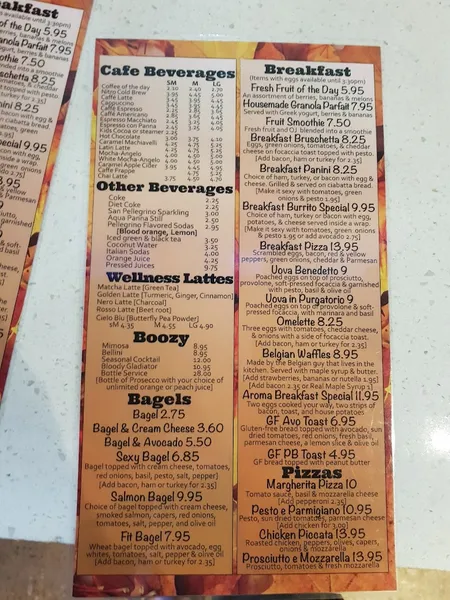 eakfast
available until 3:30pm)
of the Day 5.95
berries, bananas & melons
nola Parfait 7.95
yogurt, berries & bananas
othie 7.50
blended into a smoothie
schetta 8.25
tomatoes, cheddar
topped with pesto.
nini 8.25
bacon with egg &
ciabatta bread.
green
ecial 9.95
Cafe Beverages
SM M LG
Coffee of the day 2.10 2.40 2.70
Nitro Cold Brew
Caffe Latte
Cappuccino
Caffe Espresso
Caffe Americano
Espresso Macchiato
Espresso con Panna
Kids Cocoa or steamer 2.25
Hot Chocolate
Caramel Machiavelli
Eaten Latte
Mocha-Angelo
White Mocha-Angelo
Caramel Apple Cider
Caffe Frappe
Chai Latte 3.75 4.50 4.70
Other Beverages
Coke 2.25
Diet Coke 2.25
San Pellegrino Sparkling 3.00
Aqua Panna Still 2.50
Pellegrino Flavored Sodas 2.95
[Blood orange, Lemon]
Iced green & black tea
Coconut Water 3.50
Italian Sodas 4.00
Orange Juice 4.25
Pressed Juices 9.75
Wellness Lattes
Matcha Latte [Green Tea]
Golden Latte [Turmeric, Ginger, Cinnamon]
Nero Latte [Charcoal]
Rosso Latte [Beet root]
Cielo Blu [Butterfly Pea Powder]
SM 4.35 M 4.55 LG 4.90
Boozy
Mimosa 8.95
Bellini 8.95
Seasonal Cocktail 12.00
Bloody Gladiator 10.95
Bottle Service 28.00
[Bottle of Prosecco with your choice of
unlimited orange or peach juice]
Bagels
Bagel 2.75
Bagel & Cream Cheese 3.60
Bagel & Avocado 5.50
Sexy Bagel 6.85
Bagel topped with cream cheese, tomatoes,
red onions, basil, pesto, salt, pepper]
[Add bacon, ham or turkey for 2.35]
Salmon Bagel 9.95
Choice of bagel topped with cream cheese,
smoked salmon, capers, red onions,
tomatoes, salt, pepper, and olive oil
Fit Bagel 7.95
Wheat bagel topped with avocado, egg
whites, tomatoes, salt, pepper & olive oil
[Add bacon, ham or turkey for 2.35]
Breakfast
(Items with eggs available until 3:30pm)
Fresh Fruit of the Day 5.95
An assortment of berries, bananas & melons
Housemade Granola Parfait 7.95
Served with Greek yogurt, berries & bananas
Fruit Smoothie 7.50
Fresh fruit and OJ blended into a smoothie
Breakfast Bruschetta 8.25
Eggs, green onions, tomatoes, & cheddar
cheese on focaccia toast topped with pesto.
[Add bacon, ham or turkey for 2.35]
Breakfast Panini 8.25
Choice of ham, turkey, or bacon with egg &
cheese. Grilled & served on ciabatta bread.
[Make it sexy with tomatoes, green
onions & pesto 1.95]
Breakfast Burrito Special 9.95
Choice of ham, turkey or bacon with egg,
potatoes, & cheese served inside a wrap.
[Make it sexy with tomatoes, green onions
& pesto 1.95 or add avocado 2.75]
Breakfast Pizza 13.95
Scrambled eggs, bacon, red & yellow
peppers, green onions, cheddar & Parmesan
Uova Benedetto 9
Poached eggs on top of prosciutto,
provolone, soft-pressed focaccia & garnished
with pesto, basil & olive oil
Uova in Purgatorio 9
Poached eggs on top of provolone & soft-
pressed focaccia, with marinara and basil
Omelette 8.25
Three eggs with tomatoes, cheddar cheese,
& onions with a side of focaccia toast.
[Add bacon, ham or turkey for 2.35]
Belgian Waffles 8.95
Made by the Belgian guy that lives in the
kitchen. Served with maple syrup & butter.
[Add strawberries, bananas or nutella 1.95]
[Add bacon 2.35 or Real Maple Syrup 1]
Aroma Breakfast Special 11.95
Two eggs cooked your way, two strips of
bacon, toast, and house potatoes
GF Avo Toast 6.95
Gluten-free bread topped with avocado, sun
dried tomatoes, red onions, fresh basil,
parmesan cheese, a lemon slice & olive oil
GF PB Toast 4.95
GF bread topped with peanut butter
Pizzas
Margherita Pizza 10
Tomato sauce, basil & mozzarella cheese
[Add pepperoni 2.35]
Pesto e Parmigiano 10.95
Pesto, sun dried tomatoes, parmesan cheese
[Add chicken for 3.00]
Chicken Piccata 13.95
Roasted chicken, peppers, olives, capers,
onions & mozzarella
Prosciutto e Mozzarella 13.95
Prosciutto, tomatoes & fresh mozzarella